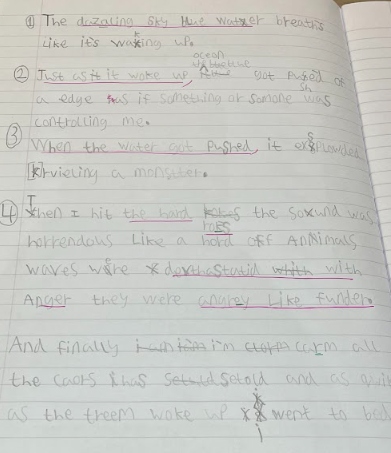 ① The dazaling sky blue watter breaths
Like it's waking up.
ocean
② Just as it woke up, got pushed of
a edge as if something or somone was
controlling me.
③ When the water got pushed, it exsplowded
rvieling a monster.
④ When I hit the hard the sound was
horrendous Like a hord off Annimals
waves were with
Anger they were angrey Like funder.
And finally i'm carm all
the caors has setold and as
as the treem woke up i went to bed